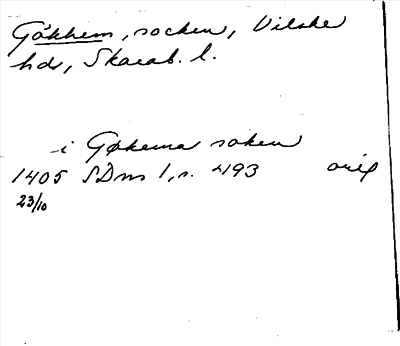 Gökhem, socken, Vilske
hdr, Skarab. l.
i Gøkema soken
1405 SDns 1, s. 493 orig
23/10